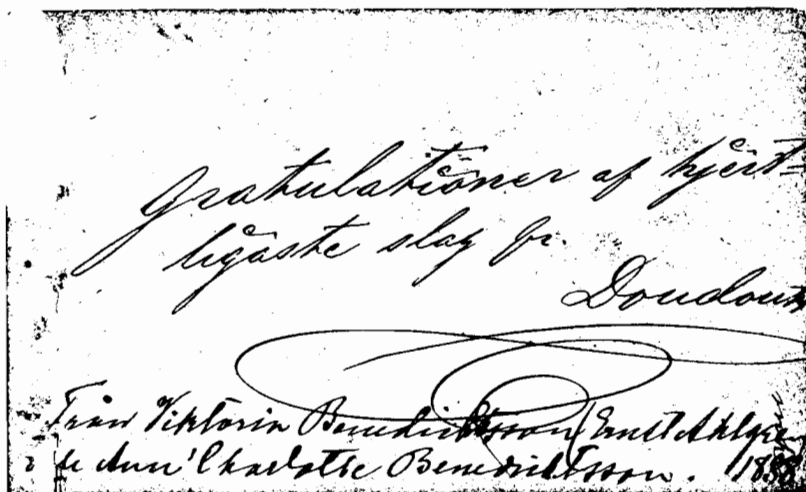 Gratulationer af hjert=
ligaste slag fr.
Doudou
Från Viktoria Benedictsson (Ernst Ahlgren
Ann' Charlotte Benedictsson. 1888